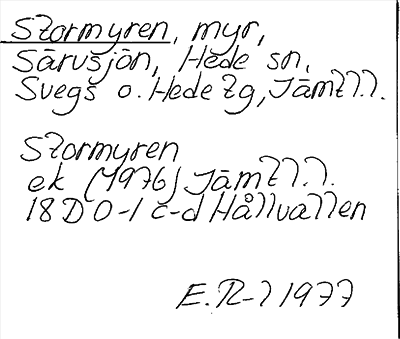 Stormyren, myr,
Särvsjön, Hede sn,
Svegs o. Hede tg, Jämtl.l.
Stormyren
ek (1976) Jämtl.l.
18D 0-1 c-d Hållvallen
E.R-l 1977